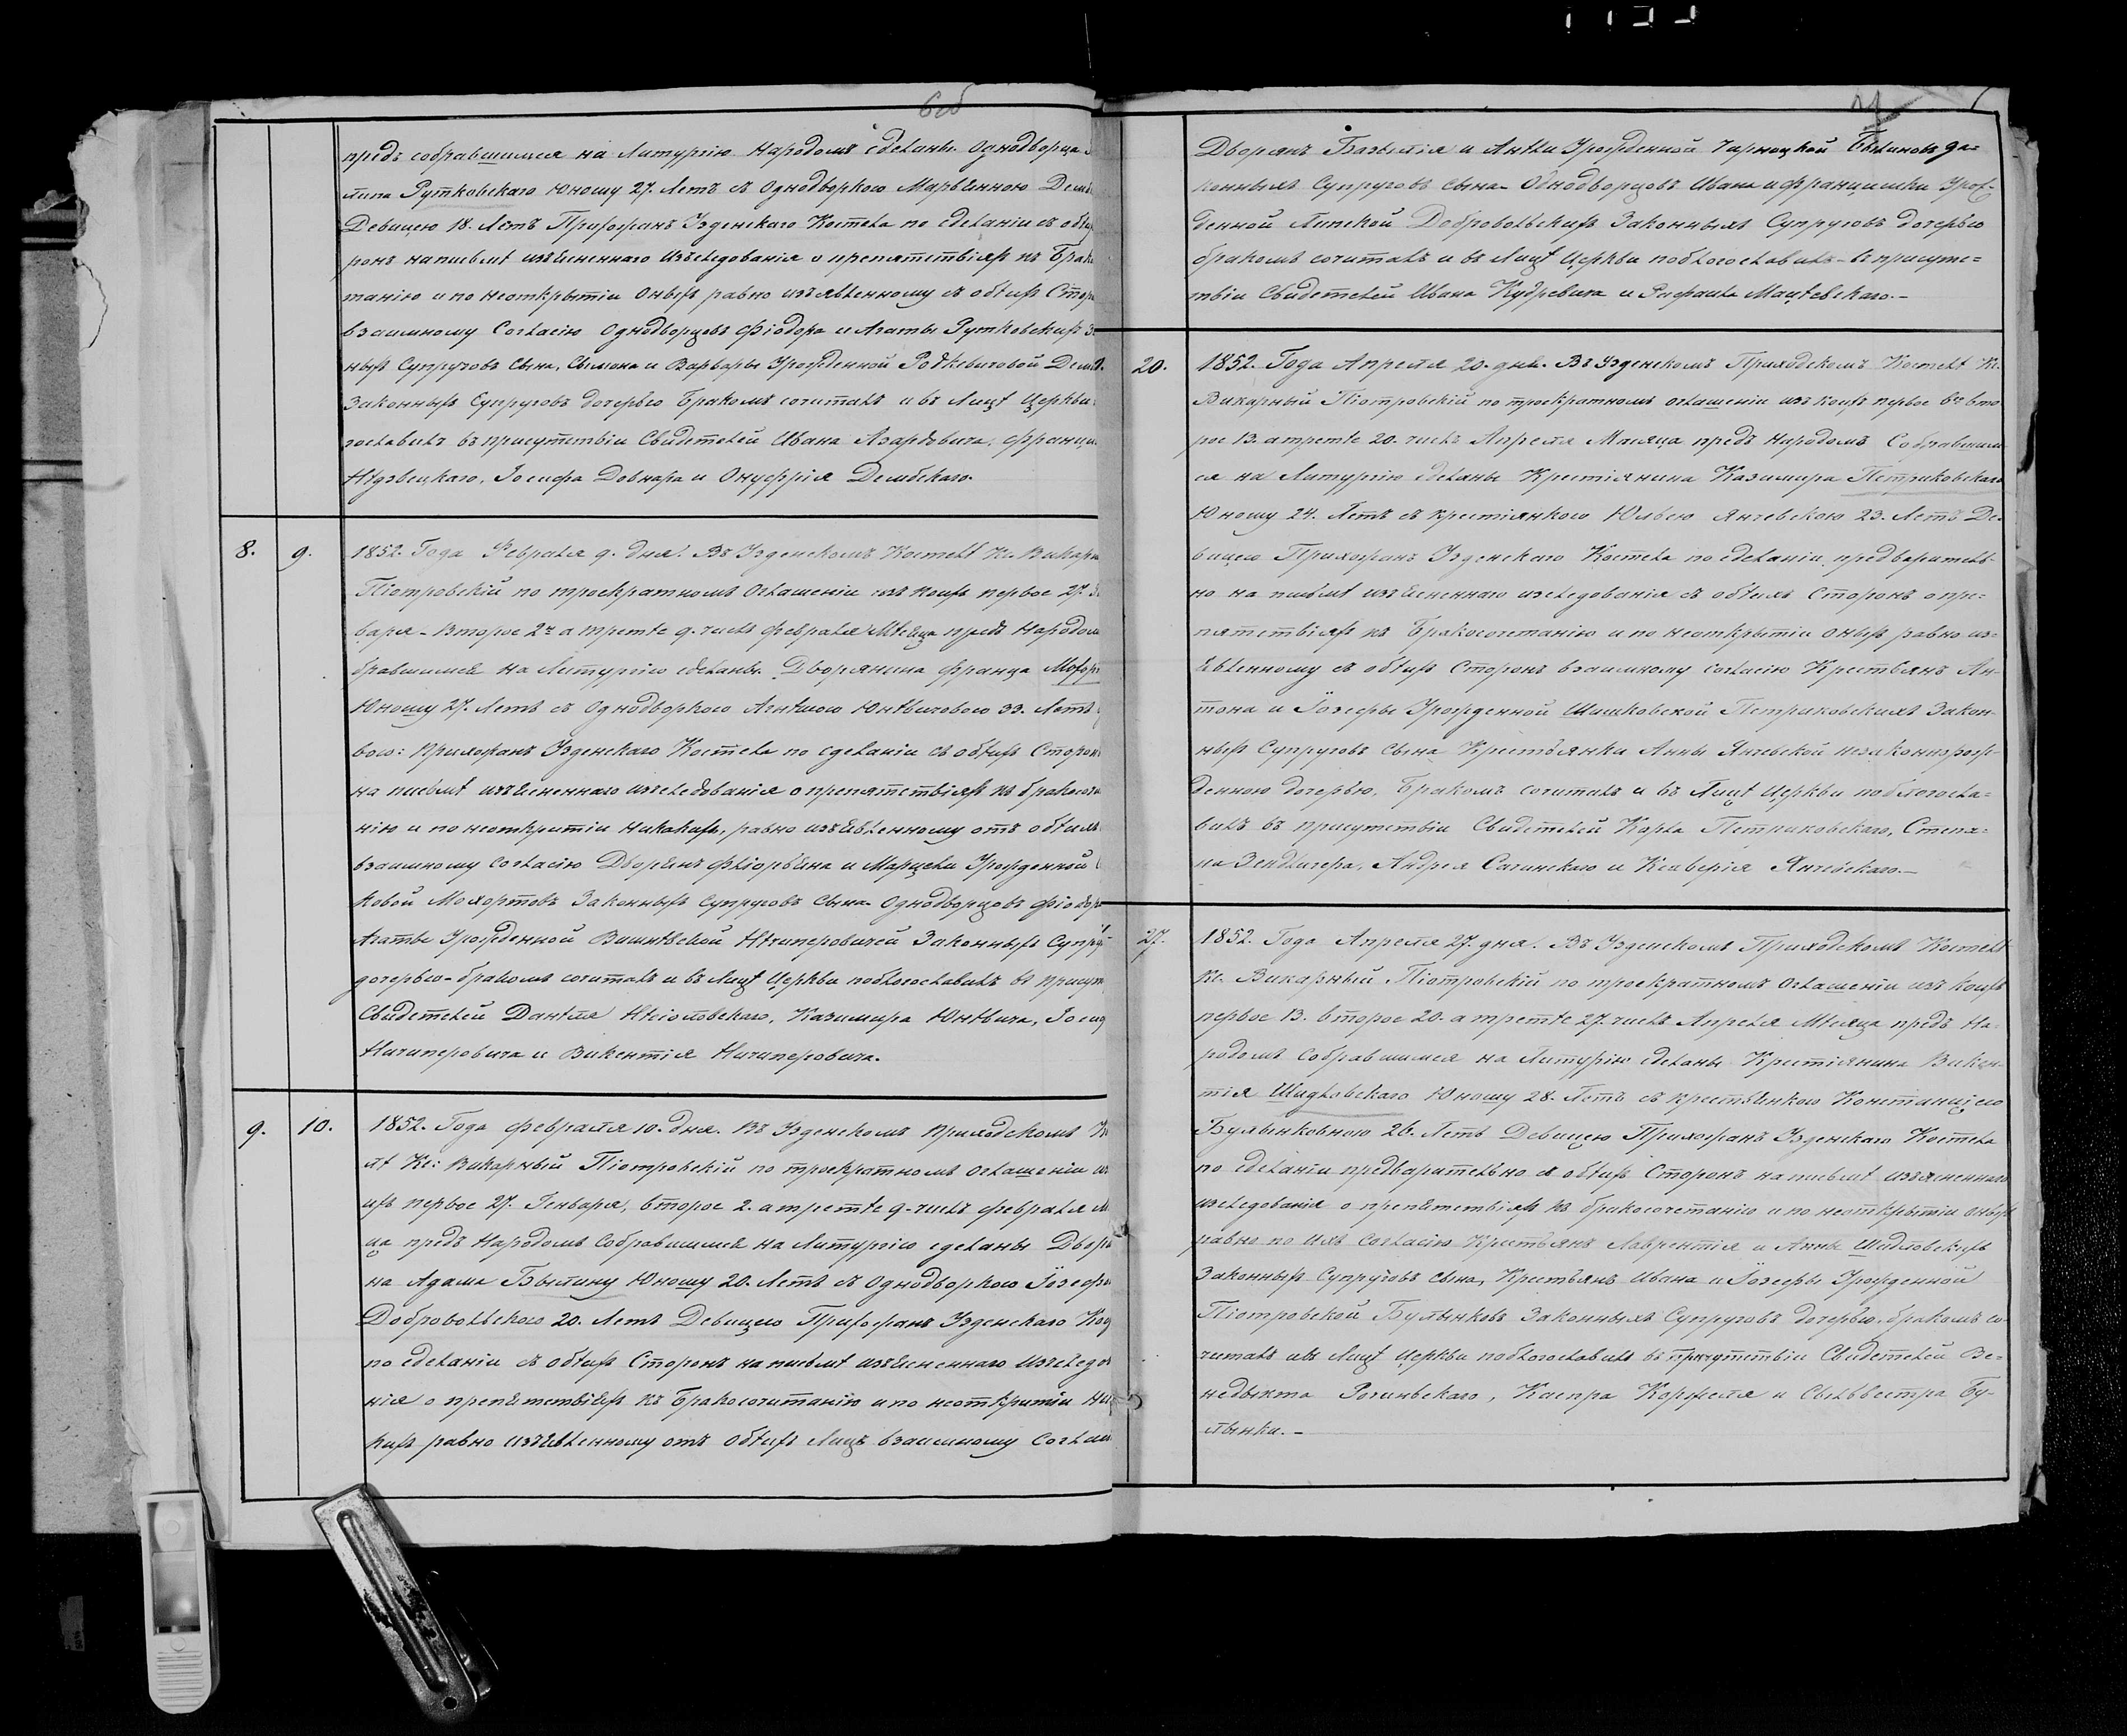 6об
предъ собравшимся на Литургію Народомъ сдѣланы. Однодворца
Рутковскаго Юношу 27. Летъ съ Однодворкою Марьянною
Девицею 18. Летъ Прихожанъ Узденскаго Костела по сделаніи съ
ронъ написьмѣ изъясненнаго Изъследованія о препятствіяхъ къ
танію и по неоткрытіи Оныхъ равно изъявленному съ обѣихъ
взаимному Согласію Однодворцевъ Фіодора и Агаты Рутковскихъ
ныхъ Супруговъ Сына, Сымона и Варвары Урожденной Родкевичовой
Законныхъ Супруговъ дочерью Бракомъ сочиталъ и въ Лицѣ Церкви
гославилъ въ присутствіи Свидетелей Ивана Азардовича,
Нѣдзвецкаго, Іосифа Довнара и Онуффрія Дембскаго.
8. 9. 1852. Года Февраля 9. дня. Въ Узденскомъ Костелѣ Кс.
Піотровскій по троекратномъ Оглашеніи изъ коихъ первое 27.
варя - Второе 2е а третье 9. числъ Февраля Мѣсяца предъ
бравшимся на Литургію сдѣланы. Дворянина Франца
Юношу 27. Летъ съ Однодворкою Агнѣшкою Юнѣвичовою 33. Летъ
вою: прихожанъ Узденскаго Костела по сделаніи съ обѣихъ
на письмѣ изъясненнаго изследованія о препятствіяхъ къ
нію и по неоткритіи Никакихъ, равно изъявленному отъ обѣихъ
взаимному Согласію Дворянъ Фліорьяна и Марцели Урожденной
ковой Мохортовъ Законныхъ Супруговъ Сына Однодворцовъ
Агаты Урожденной Вишнѣвской Нѣчиперовичей Законныхъ
дочерью - бракомъ сочиталъ и въ Лицѣ Церкви поблогославилъ въ
Свидетелей Даніеля Казимира Юнѣвича,
Ничиперовича и Викентія Ничиперовича.
9. 10. 1852. Года Февраля 10. дня. Въ Узденскомъ приходскомъ
лѣ Кс: Викарный Піотровскій по троекратномъ Оглашеніи
ихъ первое 27. Генваря, второе 2. а третте 9. числъ Февраля
ца предъ Народомъ Собравшимся на Литургію сделаны
на Адама Былину Юношу 20. Летъ съ Однодворкою
Добровольскою 20. Летъ Девицею Прихожанъ Узденскаго
по сделаніи съ обѣихъ Сторонъ на письмѣ изъясненнаго
нія о препятствіяхъ къ Бракосочитанію и по неоткритіи
кихъ равно изъявленному отъ Обѣихъ Лицъ взаимному
Дворянъ Базылія и Анѣли Урожденной Чарноцкой Былиновъ за=
конныхъ Супруговъ сына - Однодворцовъ Ивана и Францишки Урож=
денной Липской Добровольскихъ Законныхъ Супруговъ дочерью
бракомъ сочиталъ и въ Лицѣ Церкви поблогославилъ - въ присутс=
твіи Свидетелей Ивана Кудревича и Рафаила Мацѣевскаго. -
20. 1852. Года Апреля 20. дня. Въ Узденскомъ Приходскомъ Костелѣ Кс.
Викарный Піотровскій по троекратномъ оглашеніи изъ коихъ первое 6е вто
рое 13. а третте 20. числъ Апреля Месяца предъ Народомъ Собравшим
ся на Литургію сделаны Крестіянина Казимира Петриковскаго
Юношу 24. Летъ съ крестіянкою Юльею Янчевскою 23. Летъ Де-
вицею Прихожанъ Узденскаго Костела по сделаніи предварительъ-
но на письмѣ изъясненнаго изследованія съ обѣихъ Сторонъ о пре=
пятствіяхъ къ Бракосочетанію и по неоткрытіи оныхъ равно изъ=
явленному съ обѣихъ Сторонъ взаимному согласію Крестьянъ Ан-
тона и Іозефы Урожденной Шишковской Петриковскихъ Закон-
ныхъ Супруговъ сына Крестьянки Анны Янчевской незаконнорож-
денною дочерью, Бракомъ сочиталъ и въ Лицѣ Церкви поблогосла=
вилъ въ присутствіи Свидетелей Корла Петриковскаго, Степа=
на Андрея Сачинскаго и Ксаверія Янчевскаго. -
27. 1852. Года Апреля 27. дня. Въ Узденскомъ Приходскомъ Костелѣ
Кс. Викарный Піотровскій по троекратномъ Оглашеніи изъ коихъ
первое 13. второе 20. а третте 27. числъ Апреля Мѣсяца предъ На-
родомъ Собравшимся на Литургію сделаны Крестіянина Викен-
тія Шидловскаго Юношу 28. Летъ съ крестьянкою Констанціею
Булынковною 26. Летъ Девицею Прихожанъ Узденскаго Костела
по сделаніи предварительно съ обѣихъ Сторонъ на письмѣ изъясненнаго
изследованія о препятствіяхъ къ бракосочетанію и по неоткрытіи оныхъ
равно по ихъ Согласію Крестьянъ Лаврентія и Анны Шидловскихъ
Законныхъ Супруговъ сына, Крестьянъ Ивана и Іозефы Урожденной
Піотровской Булынковъ Законныхъ Супруговъ дочерью, бракомъ со-
читалъ ивъ Лицѣ Церкви поблогославилъ въ присутствіи Свидетелей Бе=
недыкта Каспра и Сыльвестра Бу-
лынки. -